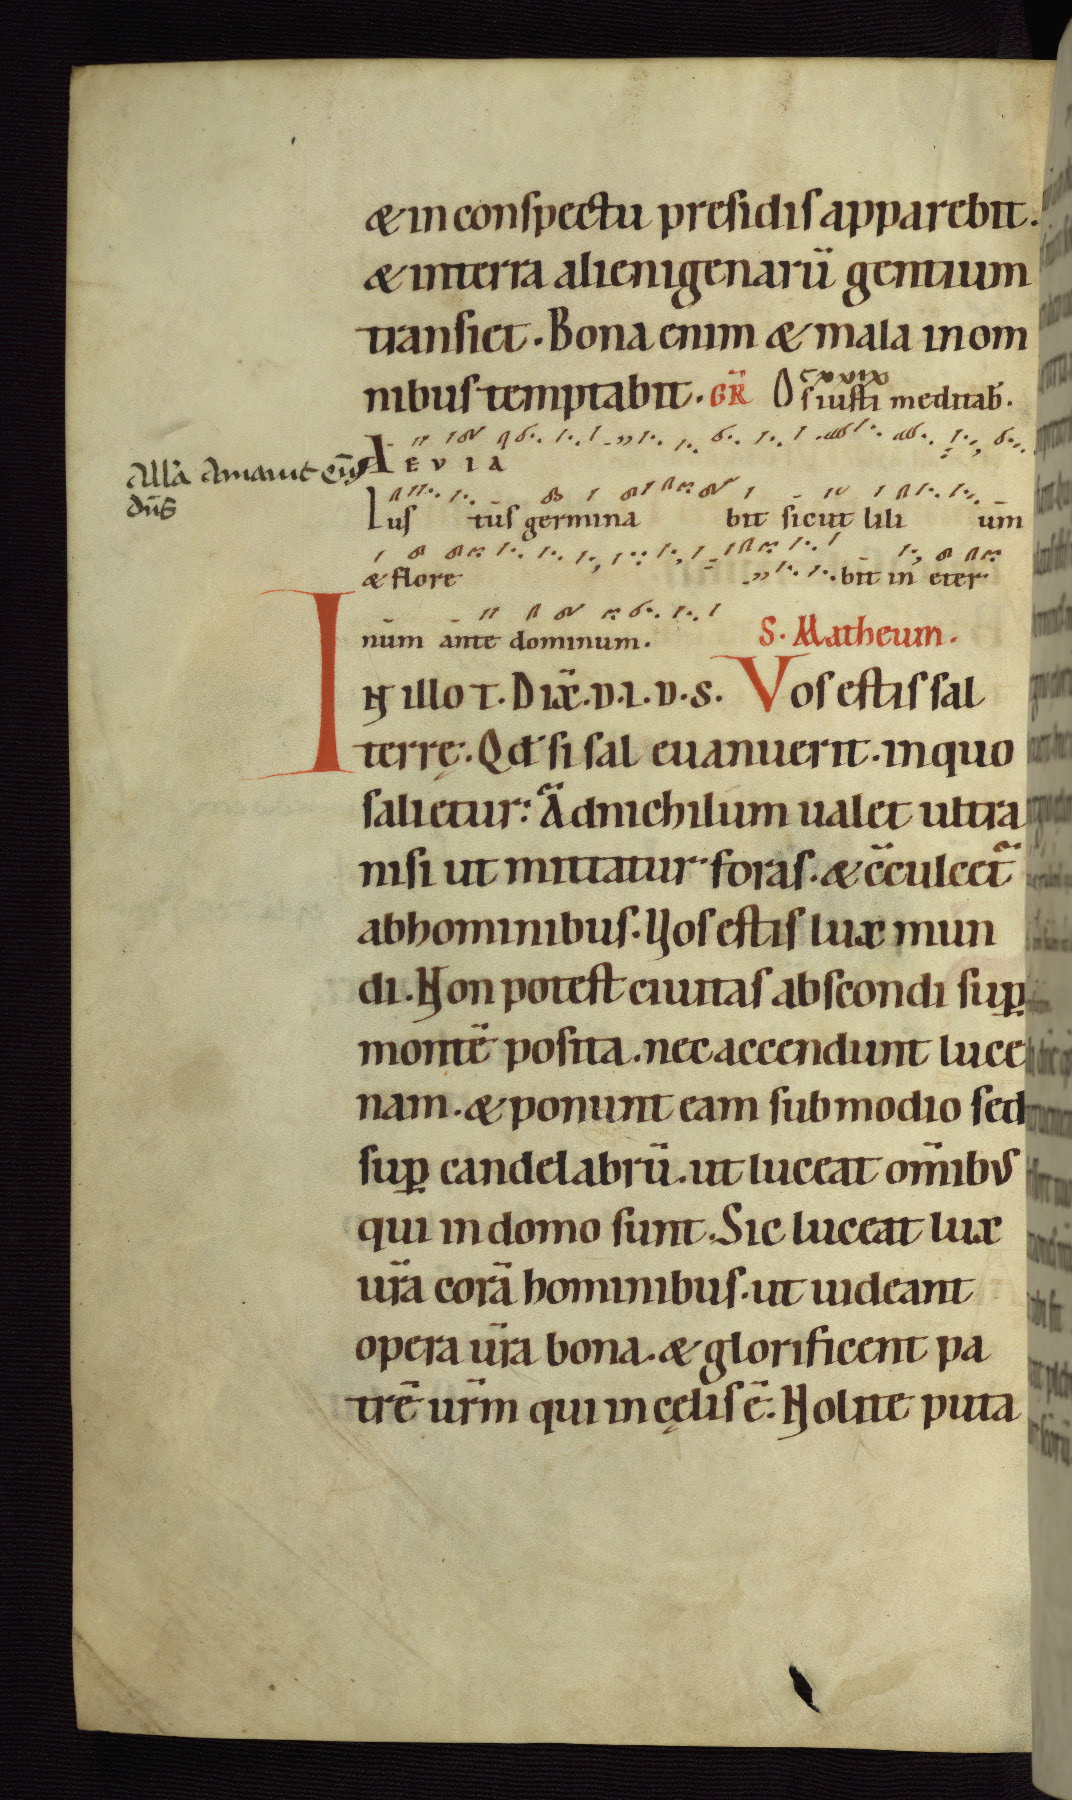 & in conspectu presidis apparebit.
& in terra alienigenarū gentium
transiet. Bona enim & mala in om
nibus temptabit. GR̄ Os iusti meditab̄.
cxxix
AEVIA
All̄a Amavit eū
dn̄s
Ius tus germina bit sicut lili um
& flore bit in eter
num ante dominum.
S. Matheum.
IN illo T. Dix̄. D. I. D. S. Vos estis sal
terrę. Qd̄ si sal euanuerit. in quo
salietur? Ad nichilum ualet ultra
nisi ut mittatur foras. & c̄culcet̄
ab hominibus. Vos estis lux mun
di. Non potest ciuitas abscondi sup̱
montē posita. nec accendunt luce
nam. & ponunt eam sub modio sed
sup̱ candelabrū. ut luceat om̄ibus
qui in domo sunt. Sic luceat lux
ur̄a corā hominibus. ut uideant
opera ur̄a bona. & glorificent pa
trē ur̄m qui in cęlis ē. Nolite puta